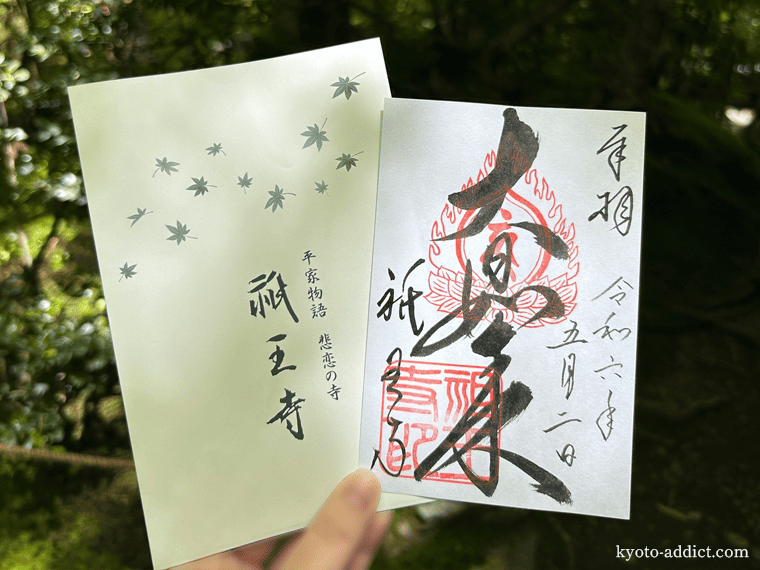 平家物語 悲恋の寺
祇王寺
奉拝
令和六年
五月二日
大日如来
祇王寺
祇王寺印
kyoto-addict.com